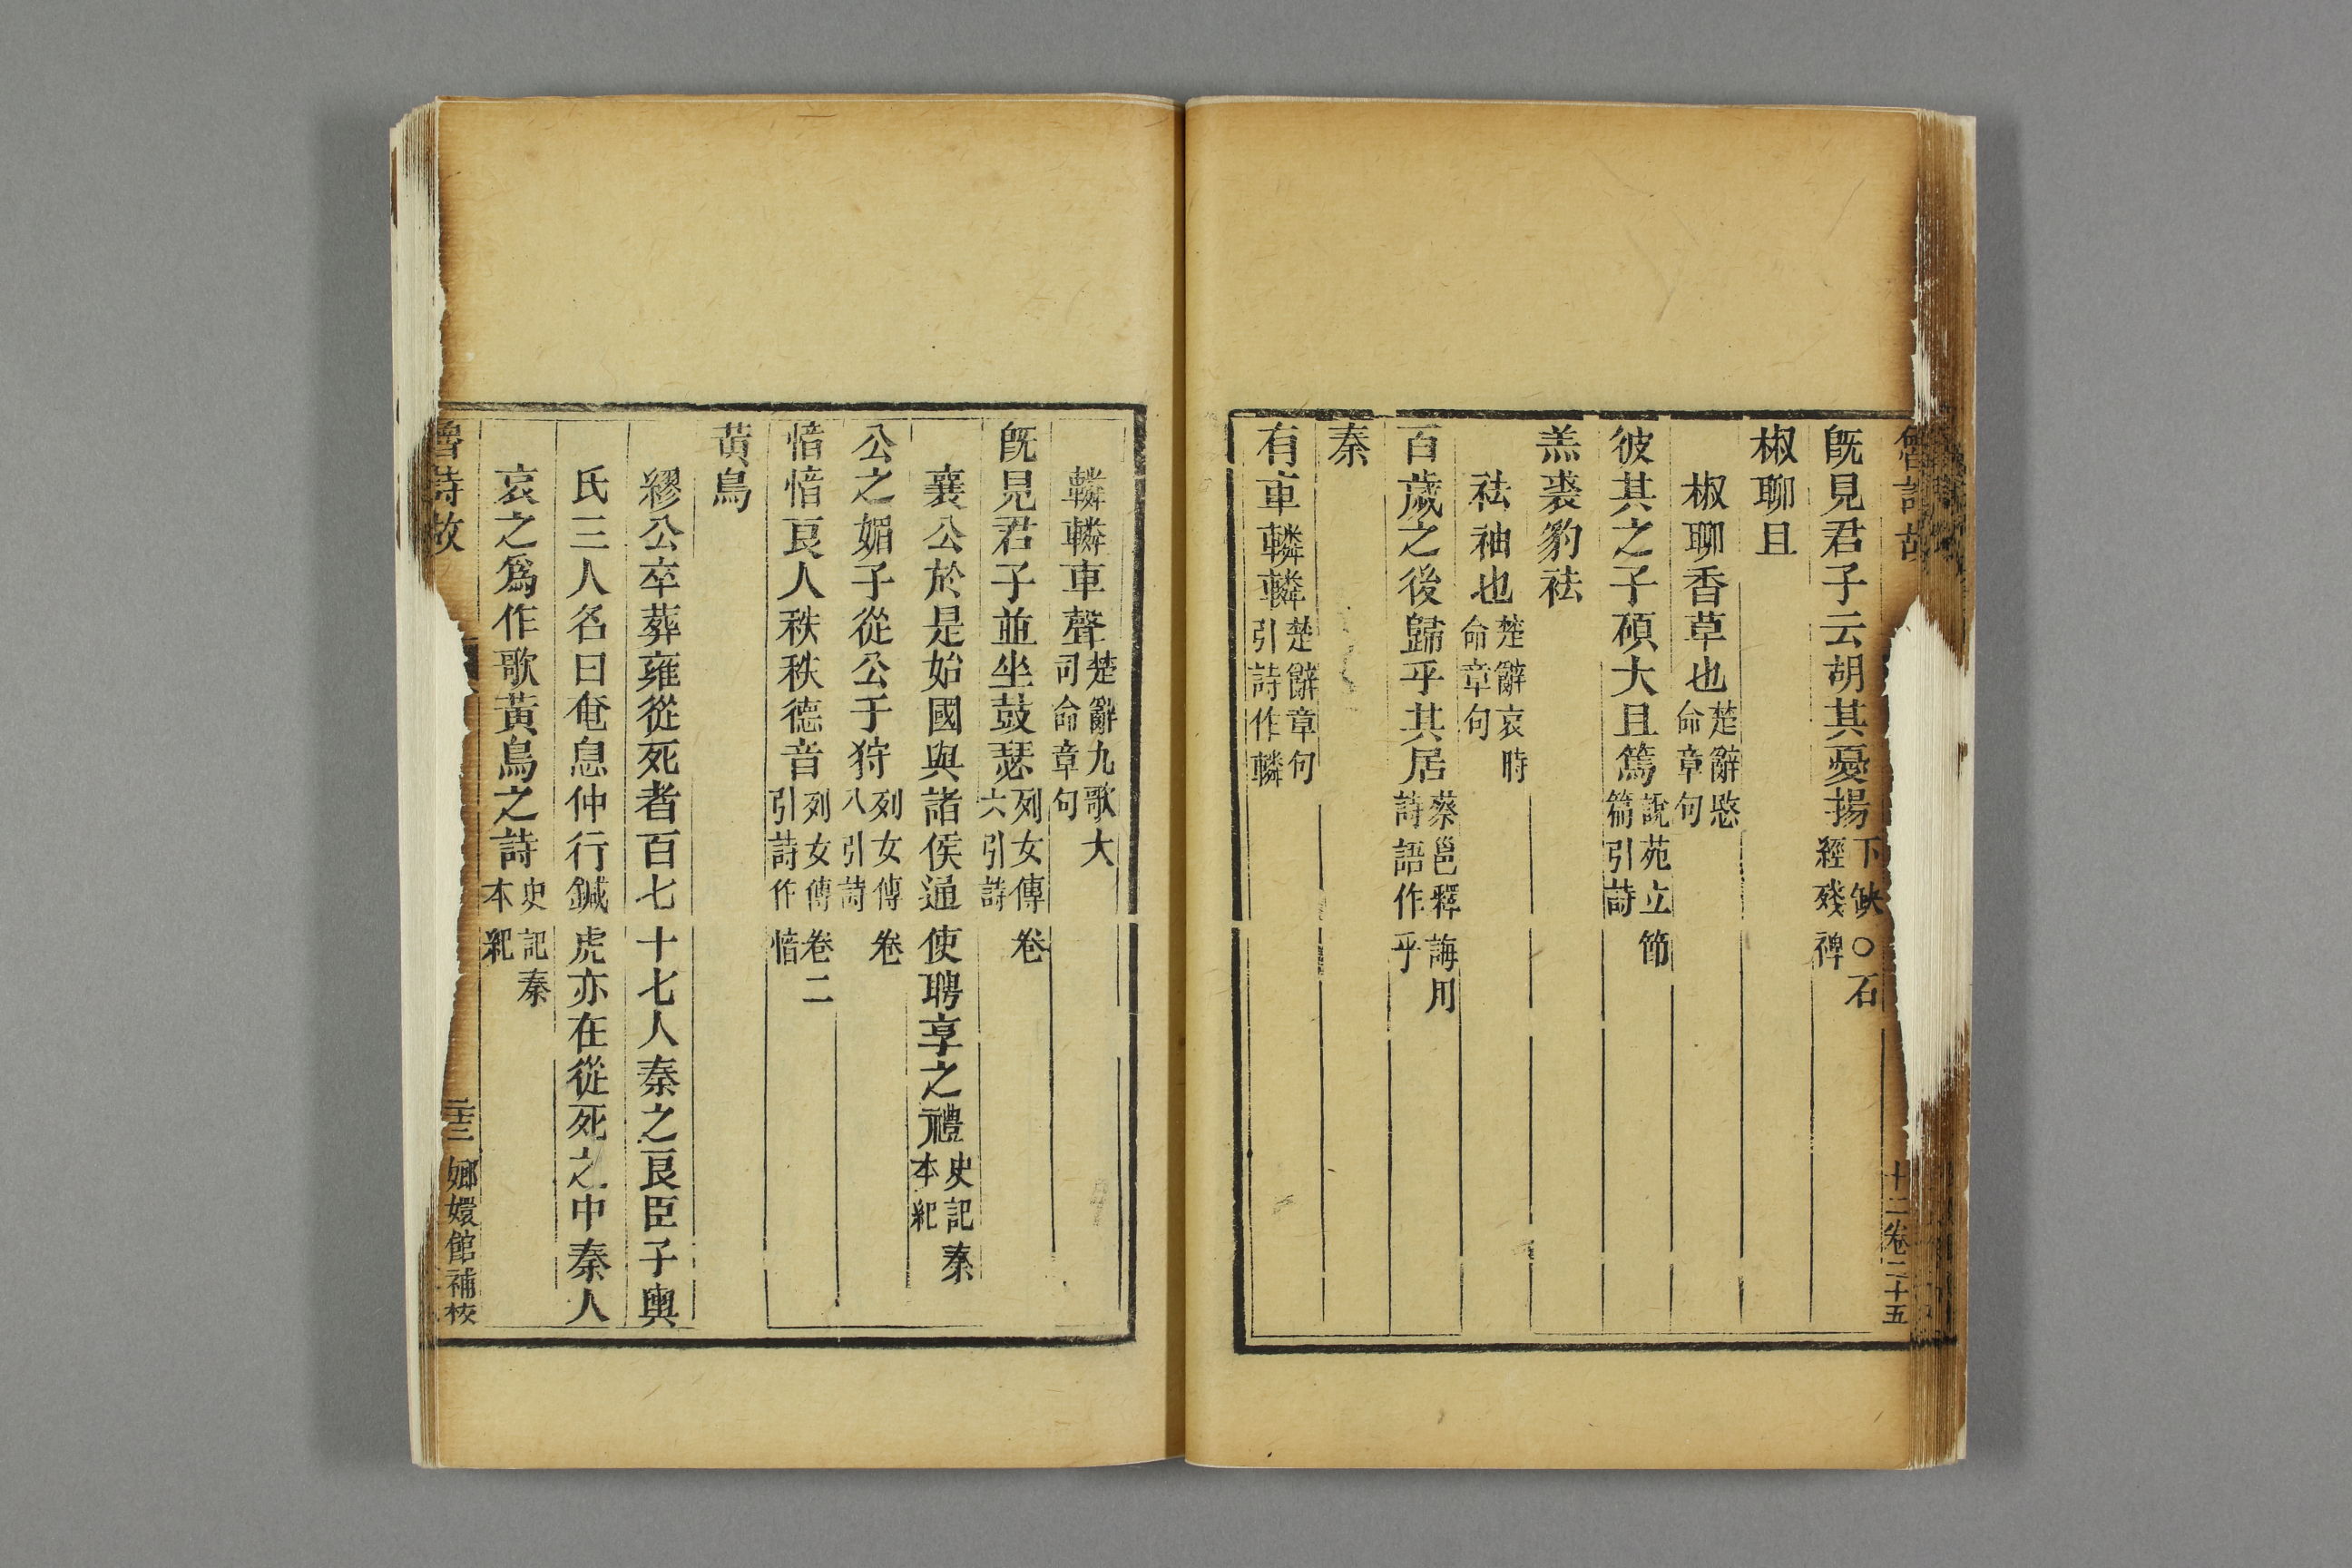 既見君子云胡其憂揚下缺○石經殘碑
椒聊且
椒聊香草也楚辭愍命章句
彼其之子碩大且篤說苑立節篇引詩
羔裘豹祛
祛袖也楚辭哀時命章句
百歲之後歸乎其居蔡邕釋誨用詩語作乎
秦
有車轔轔楚辭章句引詩作轔
十二卷二十五
轔轔車聲楚辭九歌大司命章句
既見君子並坐鼓瑟列女傳卷六引詩
襄公於是始國與諸侯通使聘享之禮史記秦本紀
公之媚子從公于狩列女傳卷八引詩
愔愔良人秩秩德音列女傳卷二引詩作愔
黃鳥
繆公卒葬雍從死者百七十七人秦之良臣子輿
氏三人名曰奄息仲行鍼虎亦在從死之中秦人
哀之爲作歌黃鳥之詩史記秦本紀
魯詩故
嫏嬛館補校